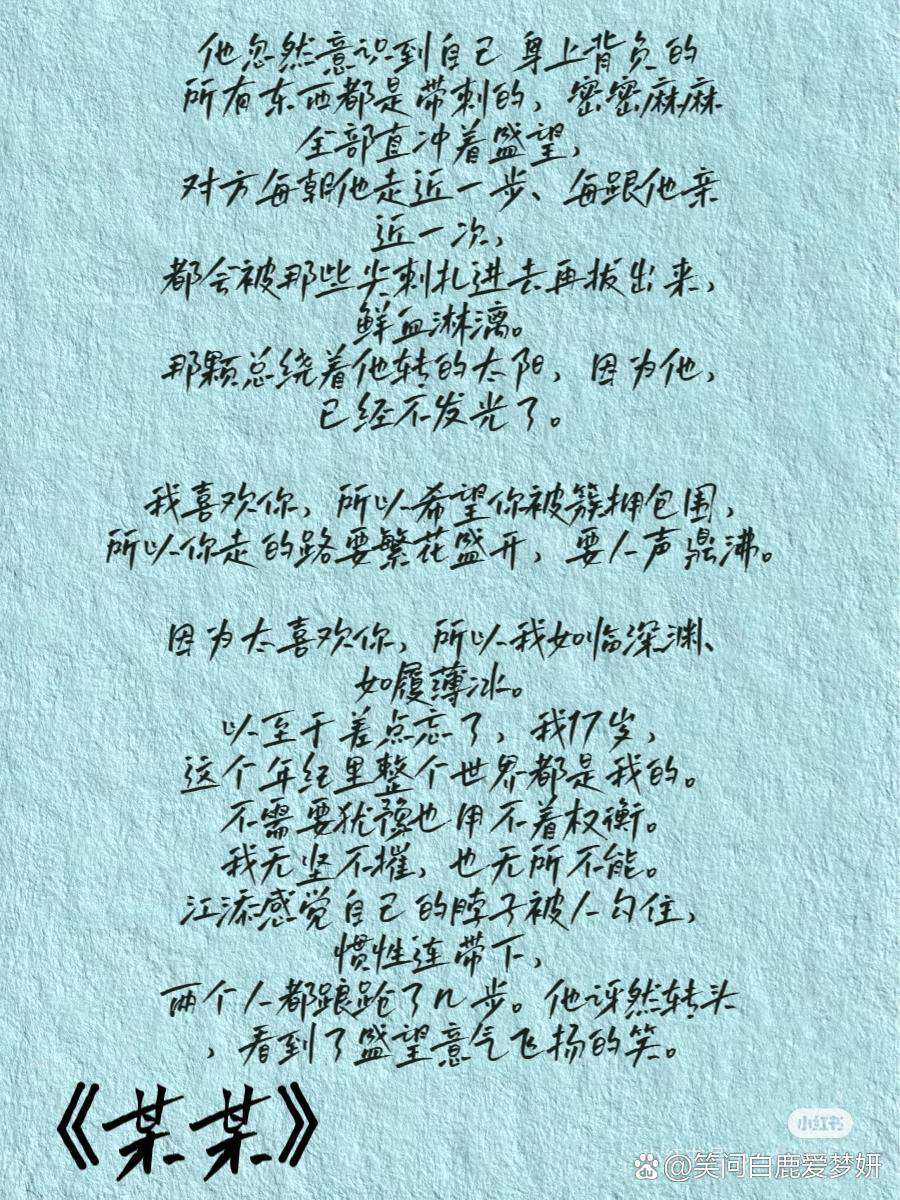 他忽然意识到自己身上背负的
所有东西都是带刺的，密密麻麻
全部直冲着盛望，
对方每朝他走近一步、每跟他亲
近一次，
都会被那些尖刺扎进去再拔出来，
鲜血淋漓。
那颗总绕着他转的太阳，因为他，
已经不发光了。
我喜欢你，所以希望你被簇拥包围，
所以你走的路要繁花盛开，要人声鼎沸。
因为太喜欢你，所以我如临深渊、
如履薄冰。
以至于差点忘了，我17岁，
这个年纪里整个世界都是我的。
不需要犹豫也用不着权衡。
我无坚不摧，也无所不能。
江添感觉自己的脖子被人勾住，
惯性连带下，
两个人都踉跄了几步。他讶然转头
，看到了盛望意气飞扬的笑。
《某某》
小红书
@笑问白鹿爱梦妍